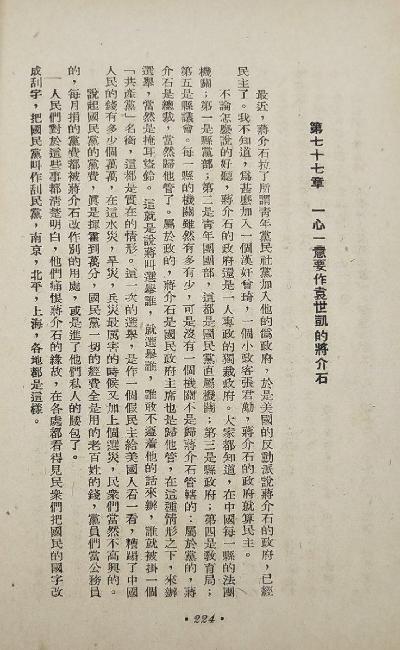 第七十七章　一心一意要作袁世凱的蔣介石
最近，蔣介石拉了所謂青年黨民社黨加入他的僞政府，於是美國的反動派說蔣介石的政府，已經
民主了。我不知道，爲甚麼加入一個漢奸曾琦，一個小政客張君勱，蔣介石的政府就算民主。
不論怎麼說的好聽，蔣介石的政府還是一人專政的獨裁政府。大家都知道，在中國每一縣的法團
機關；第一是縣黨部；第二是青年團團部，這都是國民黨直屬機關；第三是縣政府；第四是敎育局；
第五是縣議會。每一縣的機關雖然有多有少，可是沒有一個機關不是歸蔣介石管轄的；屬於黨的，蔣
介石是總裁，當然歸他管了。屬於政的，蔣介石是國民政府主席也是歸他管，在這種情形之下，來辦
選舉，當然是掩耳盜鈴。這就是說蔣叫選舉誰，就選舉誰，誰敢不遵着他的話來辦，誰就被掛一個
「共產黨」名銜，這都是實在的情形。這一次的選舉，是作一個假民主給美國人看一看，糟蹋了中國
人民的錢有多少個萬萬，在這水災，旱災，兵災最厲害的時候又加上個選災，民衆們當然不高興的。
說起國民黨的黨費，眞是揮霍到萬分，國民黨一切的經費全是用的老百姓的錢，黨員們當公務員
的，每月捐的黨費都被蔣介石改作別的用處，或是進了他們私人的腰包了。
人民們對於這些事都淸楚明白，他們痛恨蔣介石的緣故，在各處都看得見民衆們把國民的國字改
成刮字，把國民黨叫作刮民黨，南京，北平，上海，各地都是這樣。
·224·